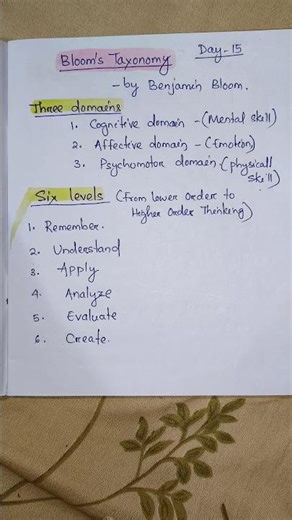 Bloom's Taxonomy Day-15
- by Benjamin Bloom.
Three domains
1. Cognitive domain - (Mental skill)
2. Affective domain - (Emotion)
3. Psychomotor domain - (physicall skill)
Six levels (From Lower order to
Higher Order Thinking)
1. Remember.
2. Understand
3. Apply
4. Analyze
5. Evaluate
6. Create.